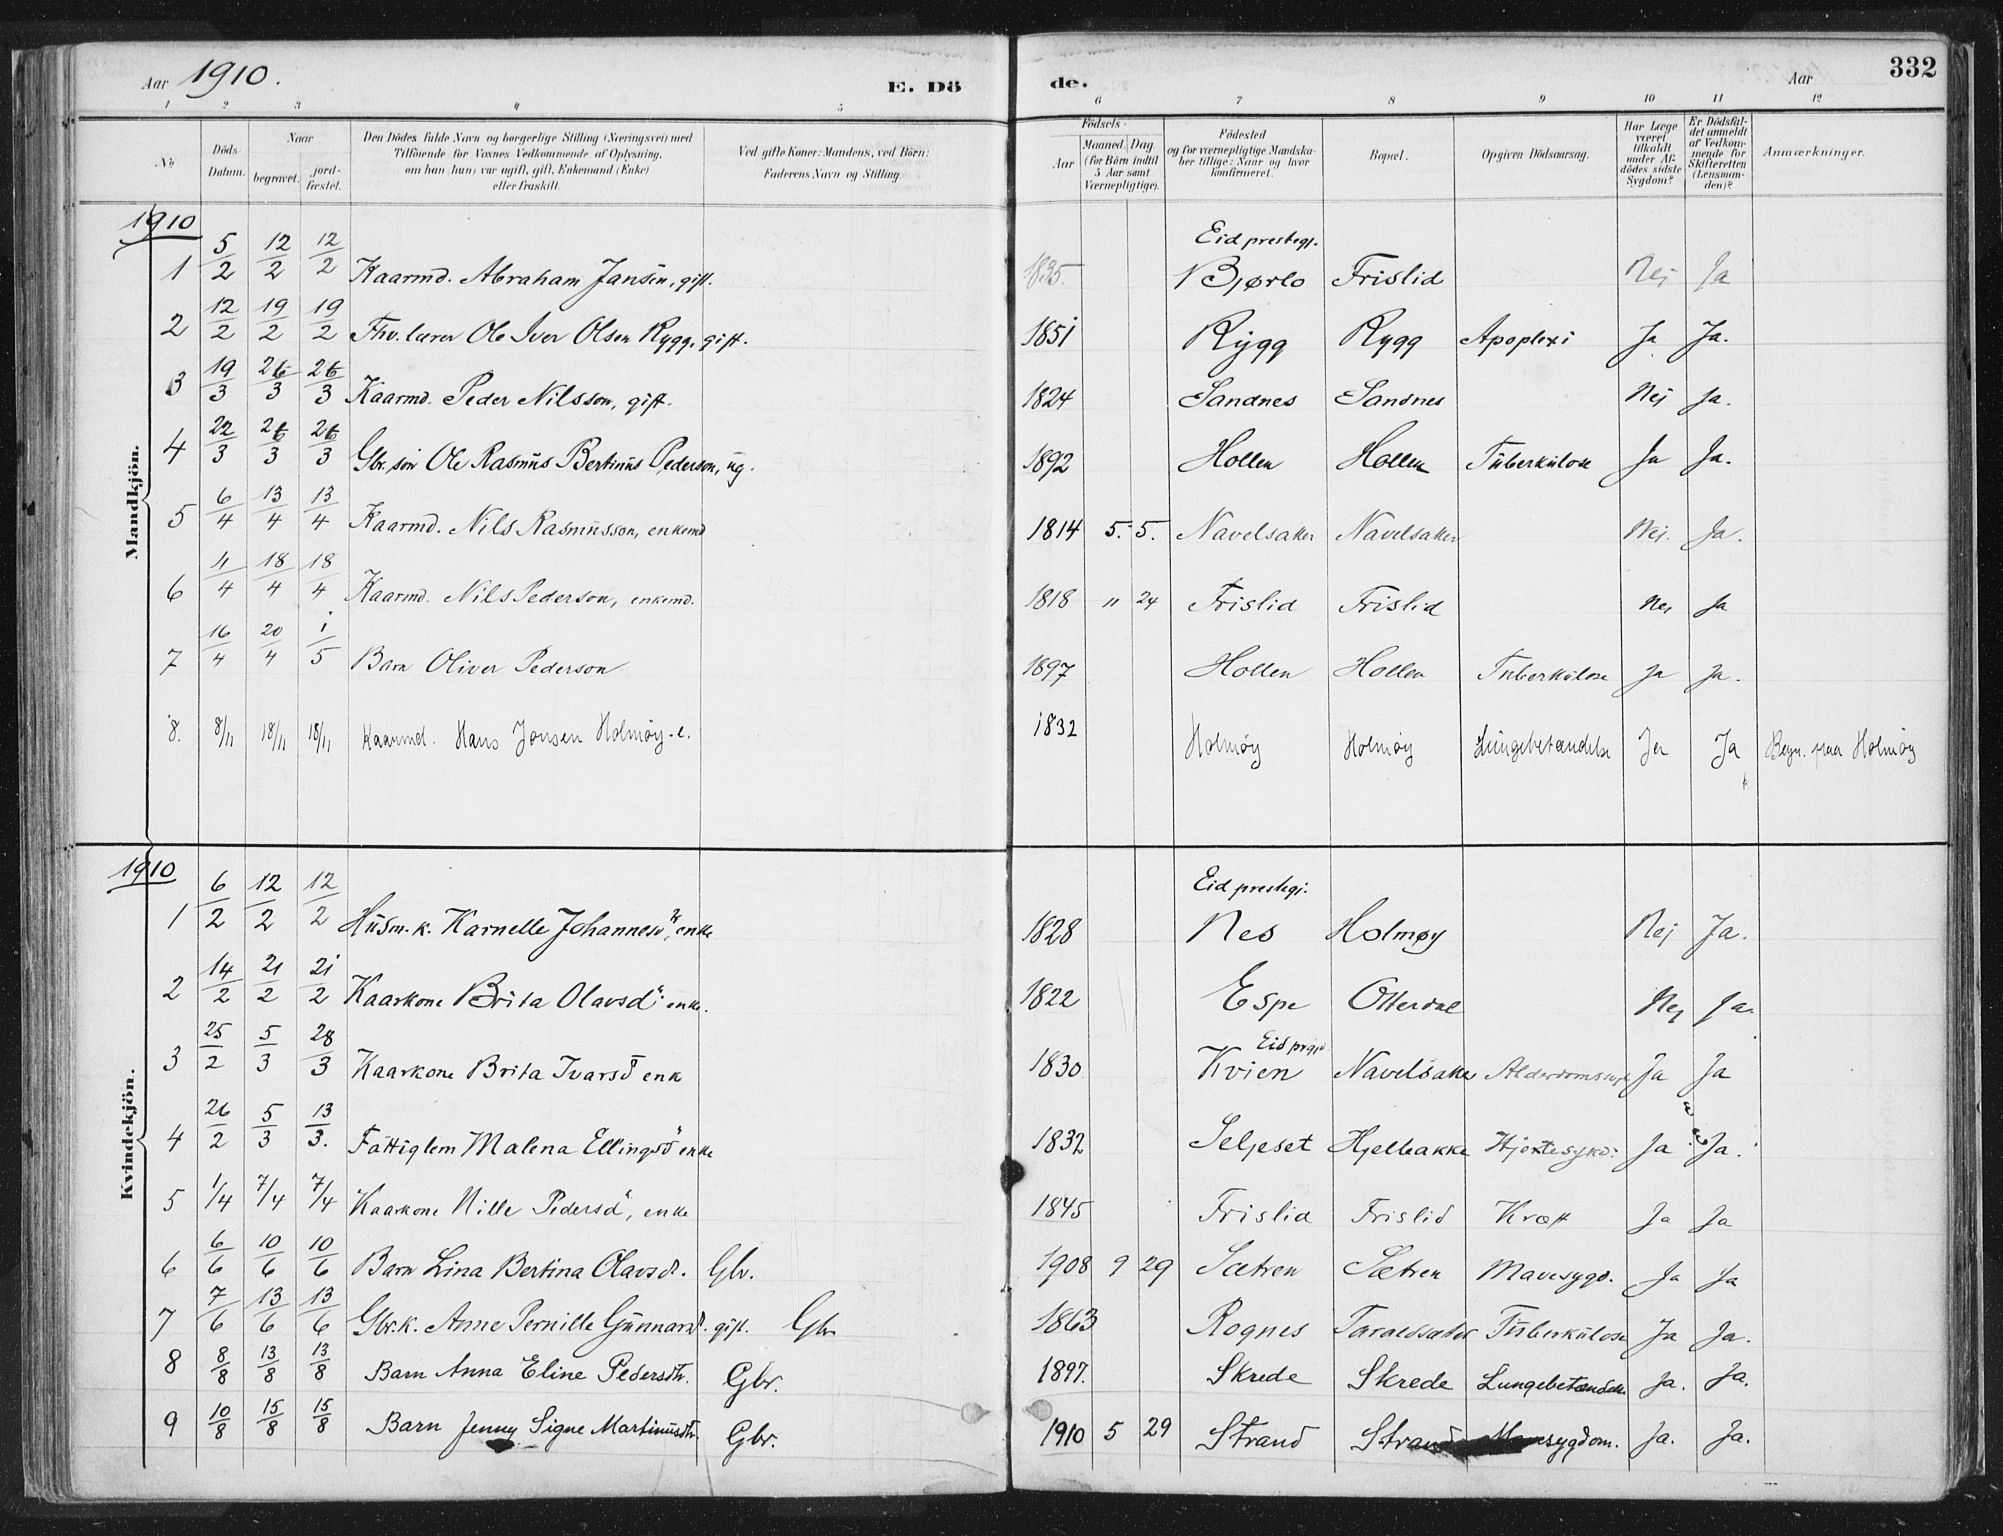 Aar 1910. E. Dö de. Aar 332
1 2 3 4 5 6 7 8 9 10 11 12
No Döds-Datum. Naar begravet. jordfæstet. Den Dödes fulde Navn og borgerlige Stilling (Næringsvei) med Tilföiende for Voxnes Vedkommende af Oplysning, om han (hun) var ugift, gift, Enkemand (Enke) eller fraskilt. Ved gifte Koner: Mandens, ved Börn: Faderens Navn og Stilling. Födsels- Aar Maaned. Dag (for Börn indtil 5 Aar samt Værnepligtige). Födested og for værnepligtige Mandskaber tillige: Naar og hvor konfirmeret. Bopæl. Opgiven Dödsaarsag. Har Læge været tilkaldt under Afdödes sidste Sygdom? Er Dödsfaldet anmeldt af Vedkommende for Skifteretten (Lensmanden)? Anmærkninger.
Mandkjön.
1910
1 5/2 12/2 12/2 Kaarmd. Abraham Jansen, gift. 1835 Eid prestegj. Bjørlo Frislid Nej Ja
2 12/2 19/2 19/2 Fhv. lærer Ole Iver Olsen Rygg, gift. 1851 Rygg Rygg Apoplexi Ja Ja.
3 19/3 26/3 26/3 Kaarmd. Peder Nilsson, gift. 1824 Sandnes Sandnes Nej Ja.
4 22/3 26/3 26/3 Gbr. søn Ole Rasmus Bertinus Pederson, ug. 1892 Hollen Hollen Tuberkulose Ja Ja.
5 6/4 13/4 13/4 Kaarmd. Nils Rasmusson, enkemd 1814 5. 5. Navelsaker Navelsaker Nej. Ja.
6 11/4 18/4 18/4 Kaarmd. Nils Pederson, enkemd. 1818 11 24 Frislid Frislid Nej Ja
7 16/4 20/4 1/5 Barn Oliver Pederson 1897 Hollen Hollen Tuberkulose Ja Ja.
8. 8/11 18/11 18/11 Kaarmd. Hans Jonsen Holmöy - e. 1832 Holmöy Holmöy Lungebetændelse Ja Ja Begr. paa Holmöy
Kvindekjön.
1910
1 6/2 12/2 12/2 Husm. k. Karnelle Johannesd, enke 1828 Eid prestegj. Nes Holmøy Nej Ja.
2 14/2 21/2 21/2 Kaarkone Brita Olavsd. enke. 1822 Espe Otterdal Nej Ja.
3 25/2 5/3 28/3 Kaarkone Brita Ivarsd enk 1830 Eid prgjd Kvien Navelsaker Ja Ja
4 26/2 5/3 13/3. Fattiglem Malena Ellingsd enke 1832 Seljeset Hjelbakke Hjertesykd. Ja Ja.
5 1/4 7/4 7/4 Kaarkone Nille Pedersd, enke 1845 Frislid Frislid Kræft Ja Ja
6 6/6 10/6 10/6 Barn Lina Bertina Olavsd. Gbr. 1908 9 29 Sætren Sætren Mavesygd. Ja Ja
7 7/6 13/6 13/6 Gbr. k. Anne Pernille Gunnarsd. gift. Gbr 1863 Rognes Taraldsæter Tuberkulose Ja Ja.
8 8/8 13/8 13/8 Barn Anna Eline Pedersdtr. Gbr. 1897. Skrede Skrede Lungebetændelse Ja. Ja.
9 10/8 15/8 15/8 Barn Jenny Signe Martinusdtr. Gbr. 1910 5 29 Strand Strand Mavesygdom. Ja. Ja.